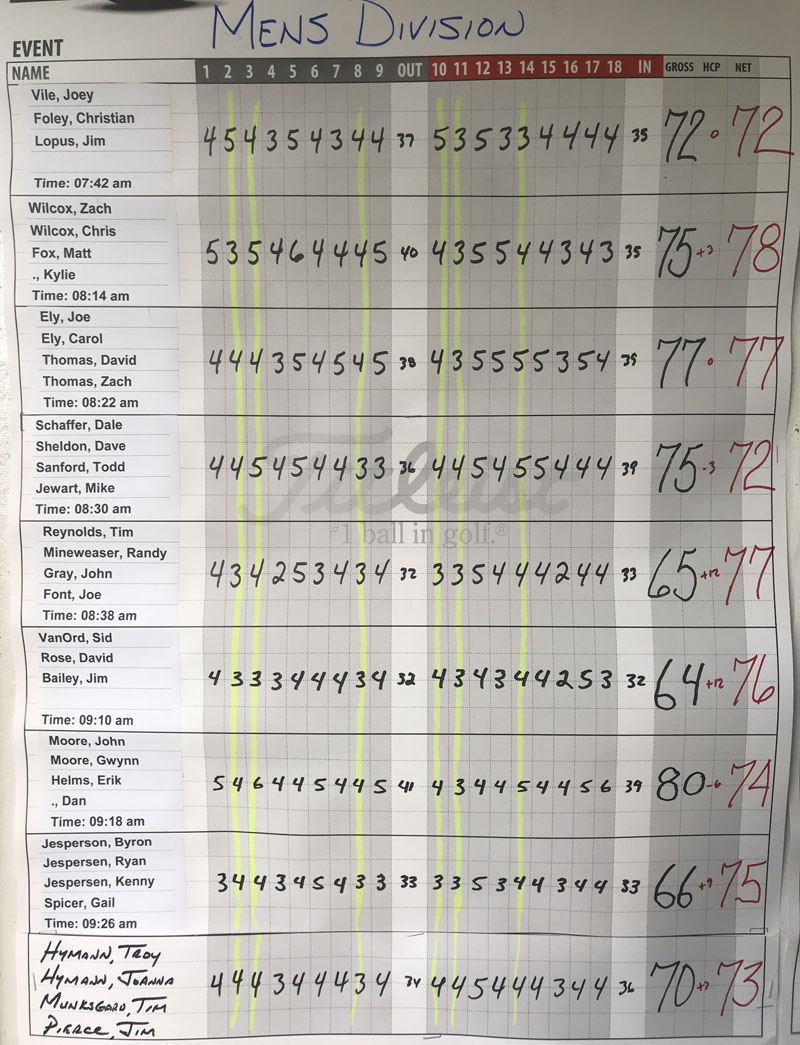 MENS DIVISION
EVENT
NAME 1 2 3 4 5 6 7 8 9 OUT 10 11 12 13 14 15 16 17 18 IN GROSS HCP NET
Vile, Joey
Foley, Christian
Lopus, Jim
4 5 4 3 5 4 3 4 4 37 5 3 5 3 3 4 4 4 4 35 72 0 72
Time: 07:42 am
Wilcox, Zach
Wilcox, Chris
Fox, Matt
5 3 5 4 6 4 4 4 5 40 4 3 5 5 4 4 3 4 3 35 75 +3 78
., Kylie
Time: 08:14 am
Ely, Joe
Ely, Carol
Thomas, David
4 4 4 3 5 4 5 4 5 38 4 3 5 5 5 5 3 5 4 39 77 0 77
Thomas, Zach
Time: 08:22 am
Schaffer, Dale
Sheldon, Dave
Sanford, Todd
4 4 5 4 5 4 4 3 3 36 4 4 5 4 5 5 4 4 4 39 75 -3 72
Jewart, Mike
Time: 08:30 am
Titleist
#1 ball in golf.®
Reynolds, Tim
Mineweaser, Randy
Gray, John
4 3 4 2 5 3 4 3 4 32 3 3 5 4 4 4 2 4 4 33 65 +12 77
Font, Joe
Time: 08:38 am
VanOrd, Sid
Rose, David
Bailey, Jim
4 3 3 3 4 4 4 3 4 32 4 3 4 3 4 4 2 5 3 32 64 +12 76
Time: 09:10 am
Moore, John
Moore, Gwynn
Helms, Erik
5 4 6 4 4 5 4 4 5 41 4 3 4 4 5 4 4 5 6 39 80 -6 74
., Dan
Time: 09:18 am
Jesperson, Byron
Jespersen, Ryan
Jespersen, Kenny
3 4 4 3 4 5 4 3 3 33 3 3 5 3 4 4 3 4 4 33 66 +9 75
Spicer, Gail
Time: 09:26 am
HYMANN, TROY
HYMANN, JOANNA
4 4 4 3 4 4 4 3 4 34 4 4 5 4 4 4 3 4 4 36 70 +3 73
MUNKSGARD, TIM
PIERCE, JIM